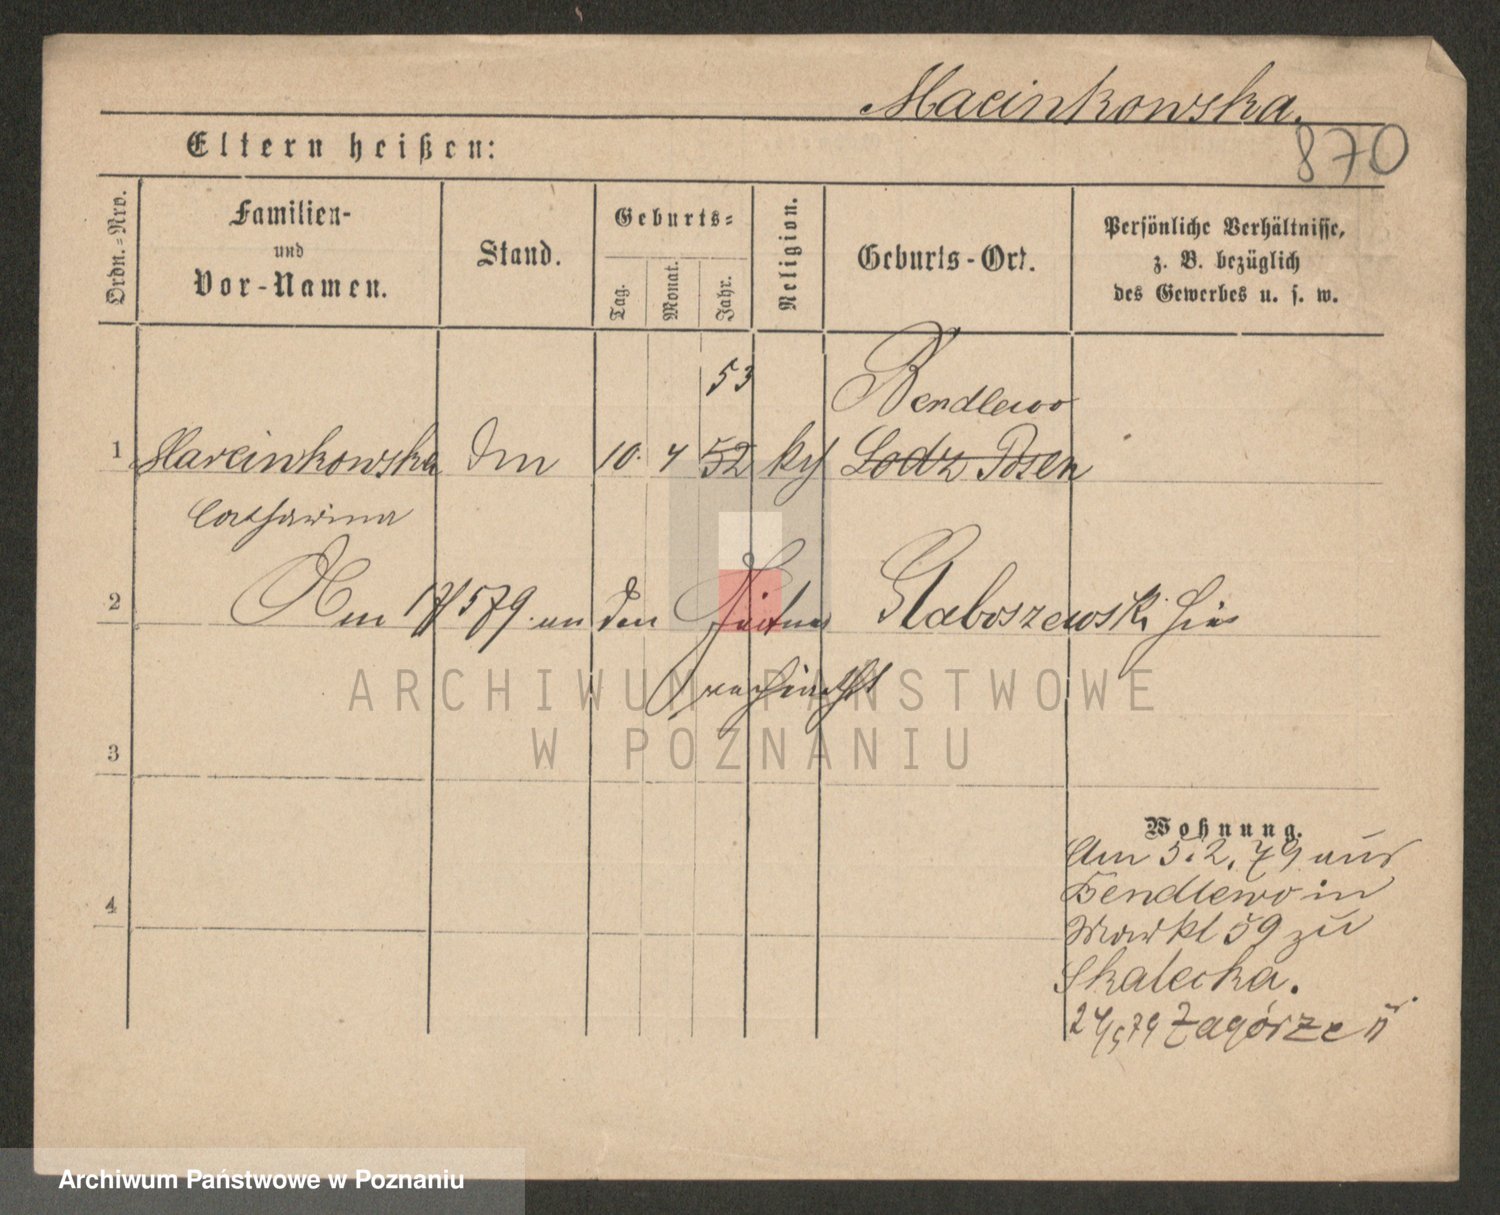 Macinkowska.
870
Eltern heißen:
Ordn.=Nro.
Familien-
und
Vor-Namen.
Stand.
Geburts=
Tag.
Monat.
Jahr.
Religion.
Geburts-Ort.
Persönliche Verhältnisse,
z. B. bezüglich
des Gewerbes u. s. w.
53
Bendlewo
1 Marcinkowska 10. 4 52 Lodz Posen
Catharina
2 Am 17/5 79 an den Glaboszewski hier
verheirathet
ARCHIWUM PAŃSTWOWE
W POZNANIU
3
Wohnung.
Am 5.2.79 aus
Bendlewo in
4
Markt 59 zu
Skalecka.
24/5 79 Zagórze
Archiwum Państwowe w Poznaniu